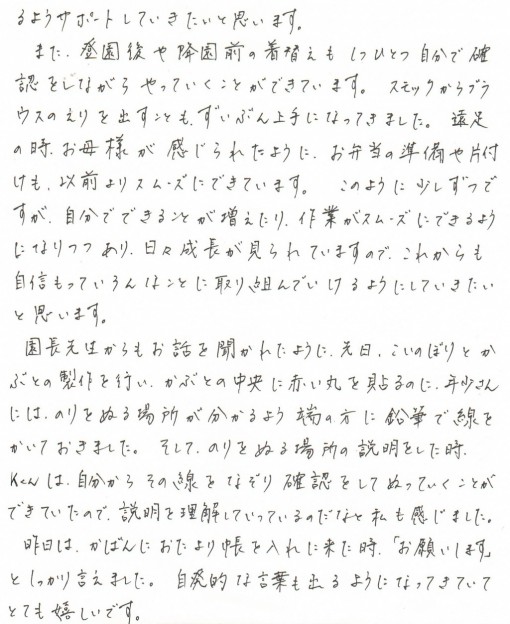 るようサポートしていきたいと思います。
また、登園後や降園前の着替えも1つひとつ自分で確
認をしながらやっていくことができています。スモックからブラ
ウスのえりを出すことも、ずいぶん上手になってきました。遠足
の時、お母様が感じられたように、お弁当の準備や片付
けも、以前よりスムーズにできています。このように少しずつで
すが、自分でできることが増えたり、作業がスムーズにできるよう
になりつつあり、日々成長が見られていますので、これからも
自信もっていろんなことに取り組んでいけるようにしていきたい
と思います。
園長先生からもお話を聞かれたように、先日、こいのぼりとか
ぶとの製作を行い、かぶとの中央に赤い丸を貼るのに、年少さん
には、のりをぬる場所が分かるよう端の方に鉛筆で線を
かいておきました。そして、のりをぬる場所の説明をした時、
Kくんは、自分からその線をなぞり確認をしてぬっていくことが
できていたので、説明を理解していっているのだなと私も感じました。
昨日は、かばんにおたより帳を入れに来た時、「お願いします」
としっかり言えました。自発的な言葉も出るようになってきていて
とても嬉しいです。